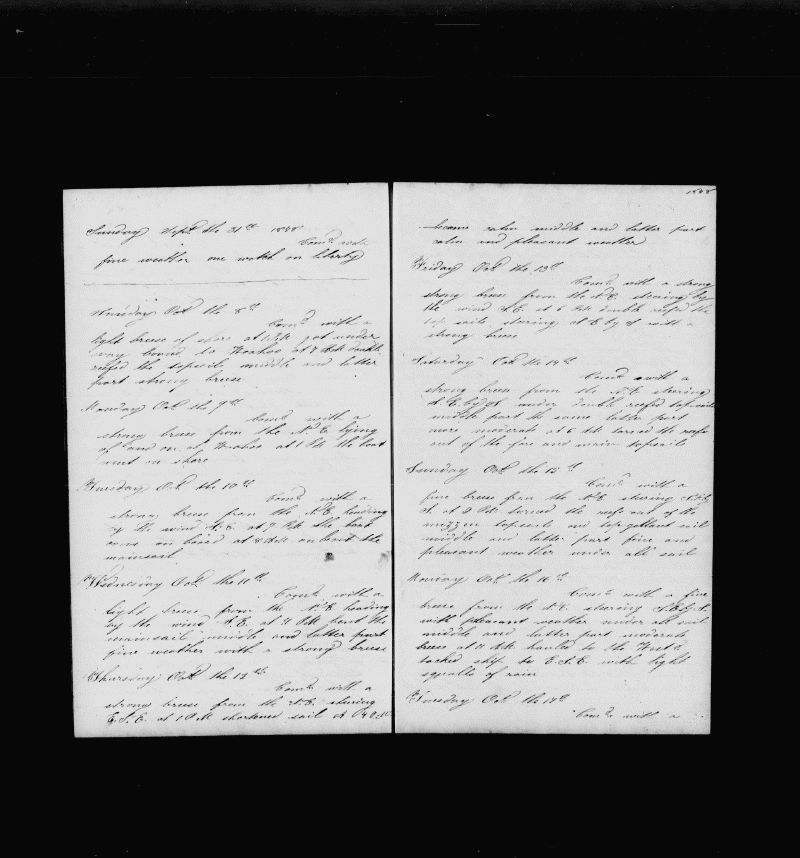 Sunday Sept the 31st 1848
Comd with
fine weather one watch on liberty
Tuesday Oct the 8th
Comd with a
light breese of shore at 1 P.M got under
way bound to Woahoo at 7 P.M double
reefed the topsails middle and latter
part strong breese
Monday Oct the 9th
Comd with a
strong breese from the N.E. lying
of and on at Woahoo at 1 P.M the boat
went on shore
Tuesday Oct the 10th
Comd with a
strong breese from the N.E. heading
by the wind S.E. at 7 P.M the boat
came on board at 8 P.M
mainsail
Wednesday Oct the 11th
Comd with a
light breese from the N.E. heading
by the wind S.E. at 4 P.M bent the
mainsail middle and latter part
fine weather with a strong breese
Thursday Oct the 12th
Comd with a
strong breese from the N.E. steering
E.S.E. at 1 P.M shortened sail at
1848
became calm middle and latter part
calm and pleasant weather
Friday Oct the 13th
Comd with a strong
strong breese from the N.E. steering by
the wind S.E. at 6 P.M double reefed the
top sails steering S.E by S with a
strong breese
Saturday Oct the 14th
Comd with a
strong breese from the N.E. steering
S.E by S. under double reefed topsails
middle part the same latter part
more moderate at 6 A.M turned the reefs
out of the fore and main topsails
Sunday Oct the 15th
Comd with a
fine breese from the N.E. steering
S. at 2 P.M turned the reefs out of the
mizzen topsails and top gallant sail
middle and latter part fine and
pleasant weather under all sail
Monday Oct the 16th
Comd with a fine
breese from the N.E. steering S.E by S.
with pleasant weather under all sail
middle and latter part moderate
breese at 11 A.M hauled to the West &
tacked ship to E.S.E. with light
squalls of rain
Tuesday Oct the 17th
Comd with a